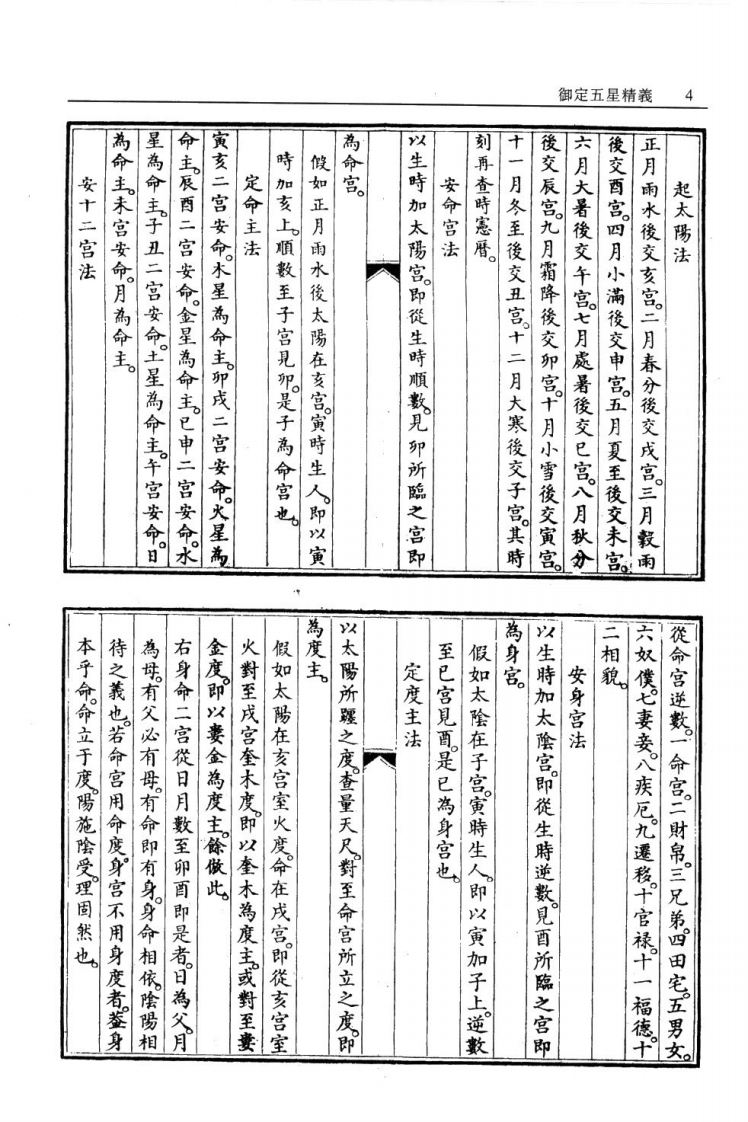 御定五星精義 4
起太陽法
正月雨水後交亥宮。二月春分後交戌宮。三月穀雨
後交酉宮。四月小滿後交申宮。五月夏至後交未宮。
六月大暑後交午宮。七月處暑後交巳宮。八月秋分
後交辰宮。九月霜降後交卯宮。十月小雪後交寅宮。
十一月冬至後交丑宮。十二月大寒後交子宮。其時
刻再查時憲曆。
安命宮法
以生時加太陽宮。即從生時順數。見卯所臨之宮即
為命宮。
假如正月雨水後太陽在亥宮。寅時生人。即以寅
時加亥上。順數至子宮見卯。是子為命宮也。
定命主法
寅亥二宮安命。木星為命主。卯戌二宮安命。火星為
命主。辰酉二宮安命。金星為命主。巳申二宮安命。水
星為命主。子丑二宮安命。土星為命主。午宮安命。日
為命主。未宮安命。月為命主。
安十二宮法
從命宮逆數。一命宮。二財帛。三兄弟。四田宅。五男女。
六奴僕。七妻妾。八疾厄。九遷移。十官祿。十一福德。十
二相貌。
安身宮法
以生時加太陰宮。即從生時逆數。見酉所臨之宮即
為身宮。
假如太陰在子宮。寅時生人。即以寅加子上。逆數
至巳宮見酉。是巳為身宮也。
定度主法
以太陽所躔之度。查量天尺。對至命宮所立之度。即
為度主。
假如太陽在亥宮室火度。命在戌宮。即從亥宮室
火對至戌宮奎木度。即以奎木為度主。或對至婁
金度。即以婁金為度主。餘倣此。
右身命二宮從日月數至卯酉即是者。日為父。月
為母。有父必有母。有命即有身。身命相依。陰陽相
待之義也。若命宮用命度。身宮不用身度者。蓋身
本乎命。命立于度。陽施陰受。理固然也。